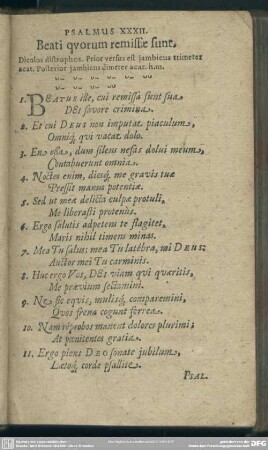 PSALMUS XXXII.
Beati qvorum remissæ sunt.
Dicolos distrophos. Prior versus est jambicus trimeter
acat. Posterior jambicus dimeter acat. h.m.
1. BEATUS ille, cui remissa sunt sua
DEI favore crimina.
2. Et cui DEUS non imputat piaculum,
Omniq́; qvi vacat dolo.
3. En ossa, dum silens nefas dolui meum,
Contabuerunt omnia.
4. Noctes enim, dieq́; me gravis tuæ
Pressit manus potentiæ.
5. Sed ut mea delicta culpæ protuli,
Me liberasti protenus.
6. Ergo salutis adpetens te flagitet,
Maris nihil timens minas.
7. Mea Tu salus: mea Tu latebra, mi DEUS:
Auctor mei Tu carminis.
8. Huc ergo Vos, DEI viam qvi quæritis,
Me prævium sectamini.
9. Ne sic equis, mulisq́; comparemini,
Qvos frena cogunt ferrea.
10. Nam reprobos manent dolores plurimi;
At pœnitentes gratia.
11. Ergo piens DEO sonate jubilum,
Lætoq́; corde psallite.
PSAL.